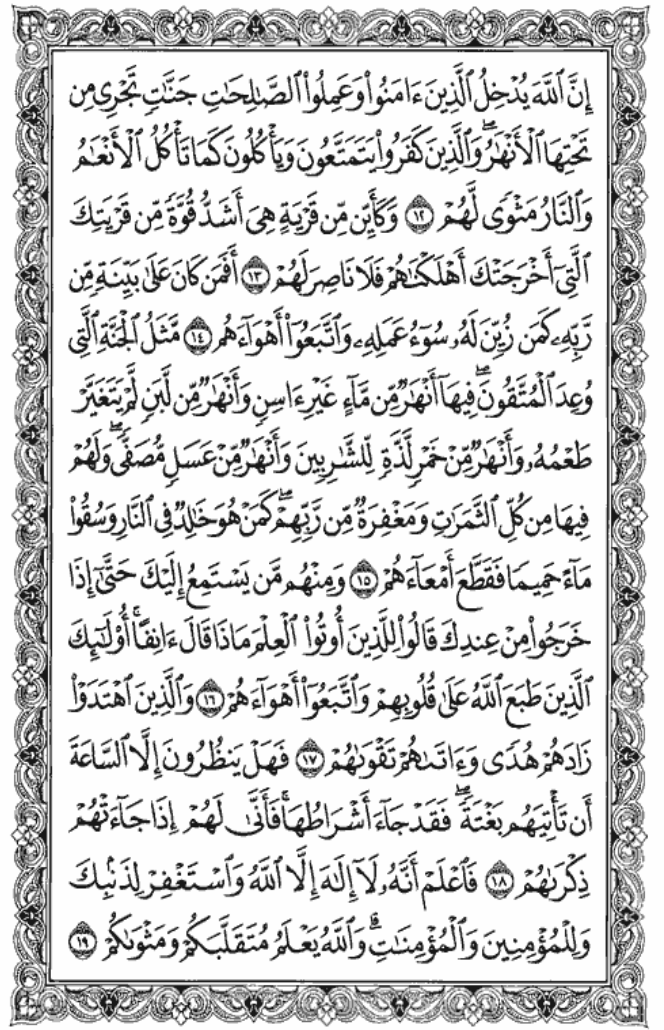 إِنَّ ٱللَّهَ يُدْخِلُ ٱلَّذِينَ ءَامَنُوا۟ وَعَمِلُوا۟ ٱلصَّـٰلِحَـٰتِ جَنَّـٰتٍ تَجْرِى مِن
تَحْتِهَا ٱلْأَنْهَـٰرُ ۖ وَٱلَّذِينَ كَفَرُوا۟ يَتَمَتَّعُونَ وَيَأْكُلُونَ كَمَا تَأْكُلُ ٱلْأَنْعَـٰمُ
وَٱلنَّارُ مَثْوًى لَّهُمْ ١٢ وَكَأَيِّن مِّن قَرْيَةٍ هِىَ أَشَدُّ قُوَّةً مِّن قَرْيَتِكَ
ٱلَّتِىٓ أَخْرَجَتْكَ أَهْلَكْنَـٰهُمْ فَلَا نَاصِرَ لَهُمْ ١٣ أَفَمَن كَانَ عَلَىٰ بَيِّنَةٍ مِّن
رَّبِّهِۦ كَمَن زُيِّنَ لَهُۥ سُوٓءُ عَمَلِهِۦ وَٱتَّبَعُوٓا۟ أَهْوَآءَهُم ١٤ مَّثَلُ ٱلْجَنَّةِ ٱلَّتِى
وُعِدَ ٱلْمُتَّقُونَ ۖ فِيهَآ أَنْهَـٰرٌ مِّن مَّآءٍ غَيْرِ ءَاسِنٍ وَأَنْهَـٰرٌ مِّن لَّبَنٍ لَّمْ يَتَغَيَّرْ
طَعْمُهُۥ وَأَنْهَـٰرٌ مِّنْ خَمْرٍ لَّذَّةٍ لِّلشَّـٰرِبِينَ وَأَنْهَـٰرٌ مِّنْ عَسَلٍ مُّصَفًّى ۖ وَلَهُمْ
فِيهَا مِن كُلِّ ٱلثَّمَرَٰتِ وَمَغْفِرَةٌ مِّن رَّبِّهِمْ ۖ كَمَنْ هُوَ خَـٰلِدٌ فِى ٱلنَّارِ وَسُقُوا۟
مَآءً حَمِيمًا فَقَطَّعَ أَمْعَآءَهُمْ ١٥ وَمِنْهُم مَّن يَسْتَمِعُ إِلَيْكَ حَتَّىٰٓ إِذَا
خَرَجُوا۟ مِنْ عِندِكَ قَالُوا۟ لِلَّذِينَ أُوتُوا۟ ٱلْعِلْمَ مَاذَا قَالَ ءَانِفًا ۚ أُو۟لَـٰٓئِكَ
ٱلَّذِينَ طَبَعَ ٱللَّهُ عَلَىٰ قُلُوبِهِمْ وَٱتَّبَعُوٓا۟ أَهْوَآءَهُمْ ١٦ وَٱلَّذِينَ ٱهْتَدَوْا۟
زَادَهُمْ هُدًى وَءَاتَىٰهُمْ تَقْوَىٰهُمْ ١٧ فَهَلْ يَنظُرُونَ إِلَّا ٱلسَّاعَةَ
أَن تَأْتِيَهُم بَغْتَةً ۖ فَقَدْ جَآءَ أَشْرَاطُهَا ۚ فَأَنَّىٰ لَهُمْ إِذَا جَآءَتْهُمْ
ذِكْرَىٰهُمْ ١٨ فَٱعْلَمْ أَنَّهُۥ لَآ إِلَـٰهَ إِلَّا ٱللَّهُ وَٱسْتَغْفِرْ لِذَنۢبِكَ
وَلِلْمُؤْمِنِينَ وَٱلْمُؤْمِنَـٰتِ ۗ وَٱللَّهُ يَعْلَمُ مُتَقَلَّبَكُمْ وَمَثْوَىٰكُمْ ١٩